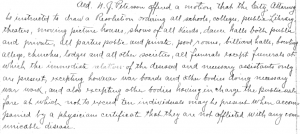 Ald. W. J. Peterson offered a motion that the City Attorney
be instructed to draw a Resolution closing all schools, colleges, public Library,
theatres, moving picture houses, shows of all kinds, dance halls both public
and private, all parks public and private, pool rooms, billiard halls, bowling
alleys, churches, lodges and all other societies, all funerals except funerals at
which the immediate relatives of the deceased and necessary assistants only
are present, excepting however war boards and other bodies doing necessary
war work, and also excepting other bodies having in charge the public
far as which not to exceed ten individuals may be present when accom-
panied by a physicians certificate that they are not afflicted with any com-
municable disease.